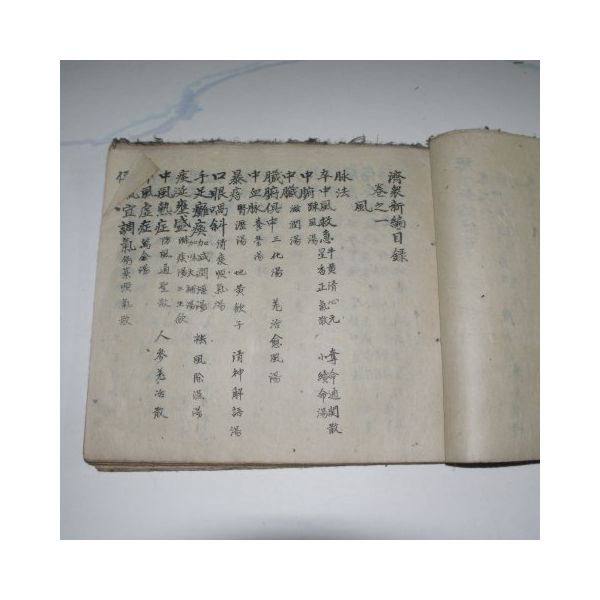 濟衆新編目錄
卷之一
風
脉法
卒中風救急 牛黃清心元 奪命通関散
星香正氣散 小續命湯
中腑 踈風湯
中臟 滋潤湯
臟腑俱中 三化湯 羌活愈風湯
中血脉 養榮湯
暴瘖 腎瀝湯 地黃飲子 清神解語湯
口眼喎斜 清痰順氣湯
手足癱瘓 加減潤燥湯 祛風除濕湯
加味大補湯
痰涎壅盛 三生飲
中風熱症 防風通聖散 人參羌活散
風虛症 萬金湯
宣調氣 順氣散